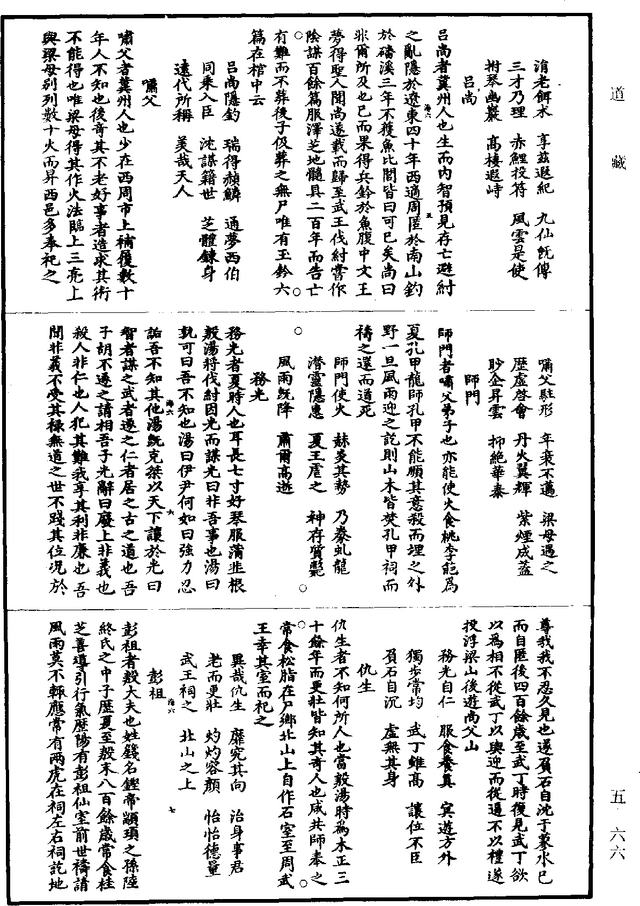 道藏
涓老餌术　享茲遐紀　九仙既傳
三才乃理　赤鯉投符　風雲是使
拊琴幽巖　高棲遐峙
呂尚
呂尚者冀州人也生而內智預見存亡避紂
之亂隱於遼東四十年西適周匿於南山釣
於磻溪三年不獲魚比閭皆曰可已矣尚曰
非爾所及也已而果得兵鈐於魚腹中文王
夢得聖人聞尚遂載而歸至武王伐紂嘗作
陰謀百餘篇服澤芝地髓具二百年而告亡
有難而不葬後子伋葬之無尸唯有玉鈐六
篇在棺中云
呂尚隱釣　瑞得赬鱗　通夢西伯
同乘入臣　沈謀籍世　芝體鍊身
遠代所稱　美哉天人
嘯父
嘯父者冀州人也少在西周市上補履數十
年人不知也後奇其不老好事者造求其術
不能得也唯梁母得其作火法臨上三亮上
與梁母別列數十火而昇西邑多奉祀之
嘯父駐形　年衰不邁　梁母遇之
歷虛啓會　丹火翼輝　紫煙成蓋
眇企昇雲　抑絕華泰
師門
師門者嘯父弟子也亦能使火食桃李葩為
夏孔甲龍師孔甲不能順其意殺而埋之外
野一旦風雨迎之訖則山木皆焚孔甲祠而
禱之還而道死
師門使火　赫炎其勢　乃豢虬龍
潛靈隱惠　夏王虐之　神存質斃
風雨既降　肅爾高逝
務光
務光者夏時人也耳長七寸好琴服蒲韭根
殷湯將伐桀因光而謀光曰非吾事也湯曰
孰可曰吾不知也湯曰伊尹何如曰強力忍
詬吾不知其他湯既克桀以天下讓於光曰
智者謀之武者遂之仁者居之古之道也吾
子胡不遂之請相吾子光辭曰廢上非義也
殺人非仁也人犯其難我享其利非廉也吾
聞非義不受其祿無道之世不踐其位況於
尊我我不忍久見也遂負石自沈于蓼水已
而自匿後四百餘歲至武丁時復見武丁欲
以為相不從武丁以輿迎而從逼不以禮遂
投浮梁山後遊尚父山
務光自仁　服食養真　冥遊方外
獨步常均　武丁雖高　讓位不臣
負石自沉　虛無其身
仇生
仇生者不知何所人也當殷湯時為木正三
十餘年而更壯皆知其奇人也咸共師奉之
常食松脂在尸鄉北山上自作石室至周武
王幸其室而祀之
異哉仇生　靡究其向　治身事君
老而更壯　灼灼容顏　怡怡德量
武王祠之　北山之上
彭祖
彭祖者殷大夫也姓籛名鏗帝顓頊之孫陸
終氏之中子歷夏至殷末八百餘歲常食桂
芝善導引行氣歷陽有彭祖仙室前世禱請
風雨莫不輒應常有兩虎在祠左右祠訖地
五・六六